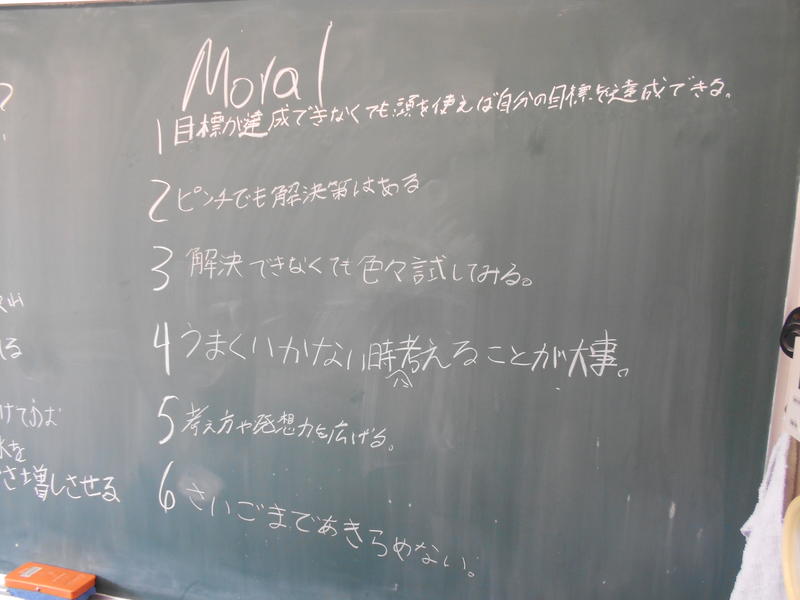 Moral
1 目標が達成できなくても頭を使えば自分の目標を達成できる。
2 ピンチでも解決策はある
3 解決できなくても色々試してみる。
4 うまくいかない時考えることが大事。
へ
5 考え方や発想力を広げる。
6 さいごまであきらめない。
る
水を
さ増しさせる